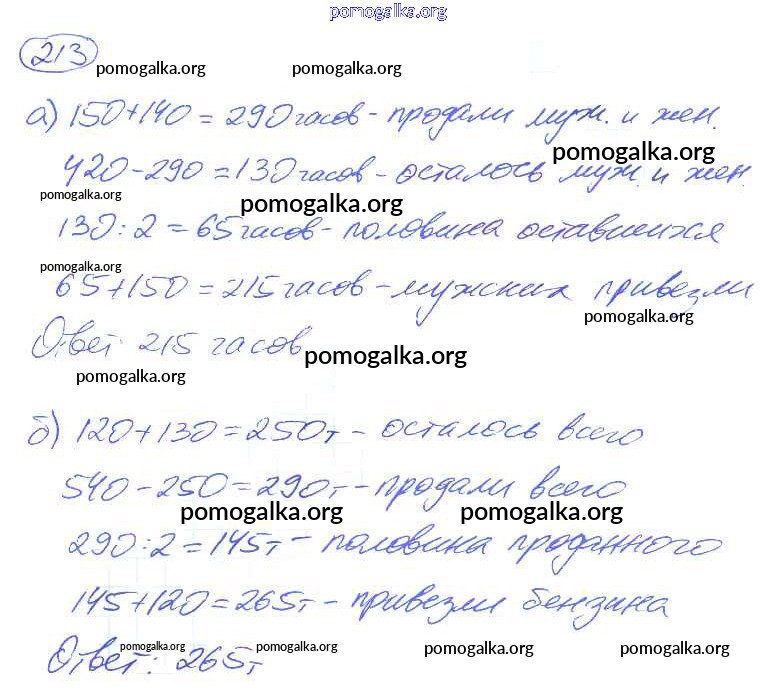 pomogalka.org
213
pomogalka.org pomogalka.org
а) 150+140 = 290 часов - продали муж. и жен.
pomogalka.org
420-290 = 130 часов - осталось муж. и жен.
pomogalka.org
pomogalka.org
130:2 = 65 часов - половина оставшихся
pomogalka.org
65+150 = 215 часов - мужских привезли
pomogalka.org
Ответ: 215 часов
pomogalka.org
pomogalka.org
б) 120+130=250т - осталось всего
540-250=290т - продали всего
pomogalka.org pomogalka.org
290:2=145т - половина проданного
145+120=265т - привезли бензина
pomogalka.org pomogalka.org pomogalka.org pomogalka.org
Ответ: 265т